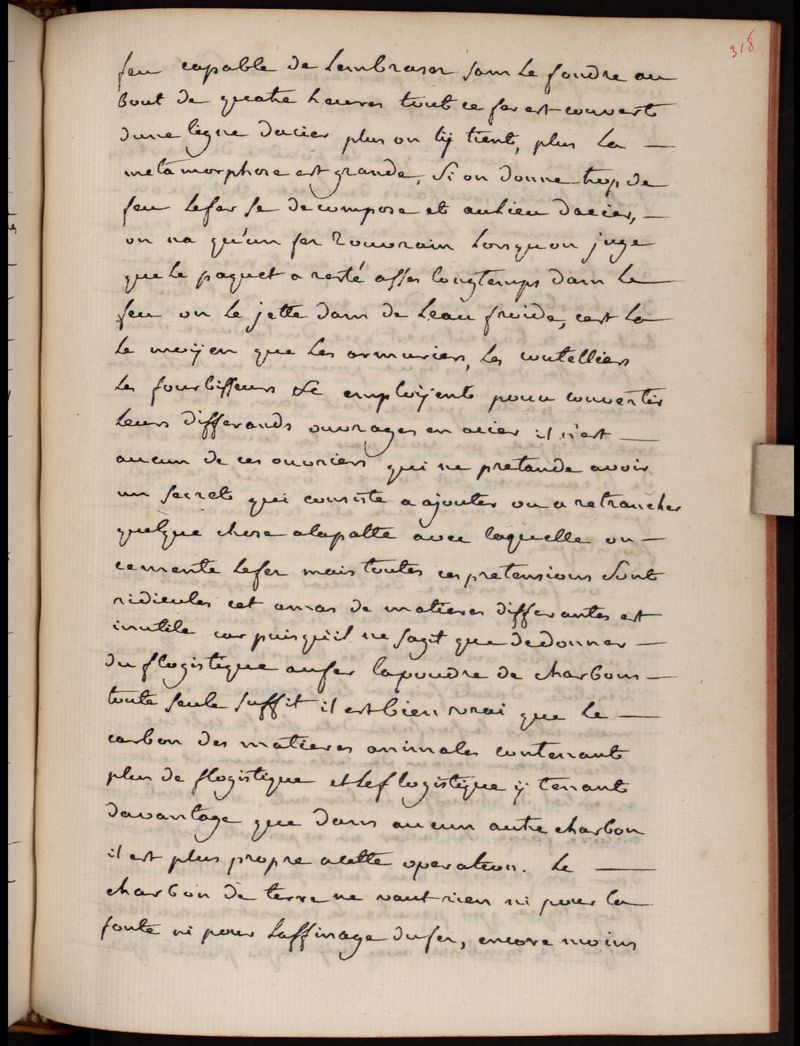 318
feu capable de Lembraser sans Le fondre au
bout de quatre heures tout ce fer est couvert
dune ligne dacier plus on lÿ tient, plus La —
metamorphose est grande, Si on donne trop de
feu Lefer se decompose et aulieu dacier, —
on na qu'un fer Rouvrain Lorsquon juge
que Le paquet a resté asses longtemps dans Le
feu on Le jette dans de Leau froide, cest La
Le moÿen que Les armuriers, Les coutelliers
Les fourbisseurs &c emploÿent pour convertir
Leurs differands ouvrages en acier il n'est —
aucun de ces ouvriers qui ne pretande avoir
un secret qui consiste a ajouter ou a retrancher
quelque chose alapatte avec laquelle on —
cemente Lefer mais toutes ces pretensions Sont
ridicules cet amas de matieres differantes est
inutile car puisqu'il ne sagit que dedonner —
du flogistique aufer lapoudre de charbons —
toute seule suffit il est bien vrai que Le —
carbon des matieres animales contenant
plus de flogistique et Leflogistique ÿ tenant
davantage que dans aucun autre charbon
il est plus propre acette operation. Le —
charbon de terre ne vaut rien ni pour la
fonte ni pour Laffinage dufer, encore moins